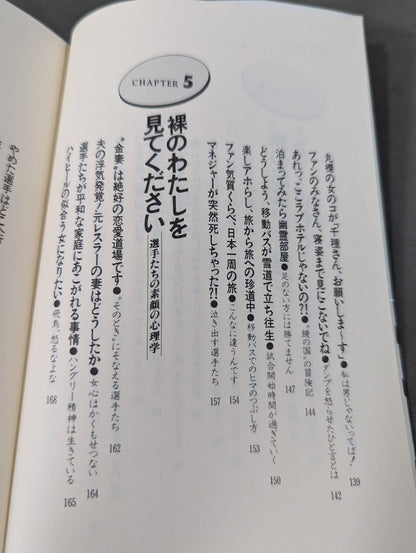 丸裸の女のコが「千種さん、お願いしま〜す」●私は男じゃないってば! 139
ファンのみなさん、寝姿まで見にこないでね●ダンプを怒らせたひと言とは 142
あれっ、ここラブホテルじゃないの?!●“裸の国”の冒険記 144
泊まってみたら幽霊部屋●足のない方には勝てません 147
どうしよう、移動バスが雪道で立ち往生●試合開始時間が過ぎていく 150
楽しアホらし、旅から旅への珍道中●移動バスでのヒマのつぶし方 153
ファン気質くらべ、日本一周の旅●こんなに違うんです 154
マネジャーが突然死しちゃった?!●泣き出す選手たち 157
CHAPTER 5
裸のわたしを
見てください
選手たちの素顔の心理学
“金妻”は絶好の恋愛道場です●“そのとき”にそなえる選手たち 162
夫の浮気発覚!元レスラーの妻はどうしたか●女心はかくもせつない 164
選手たちが平和な家庭にあこがれる事情●ハングリー精神は生きている 165
ハイヒールの似合う女になりたい●飛鳥、怒るなよな 168
やめた選手は